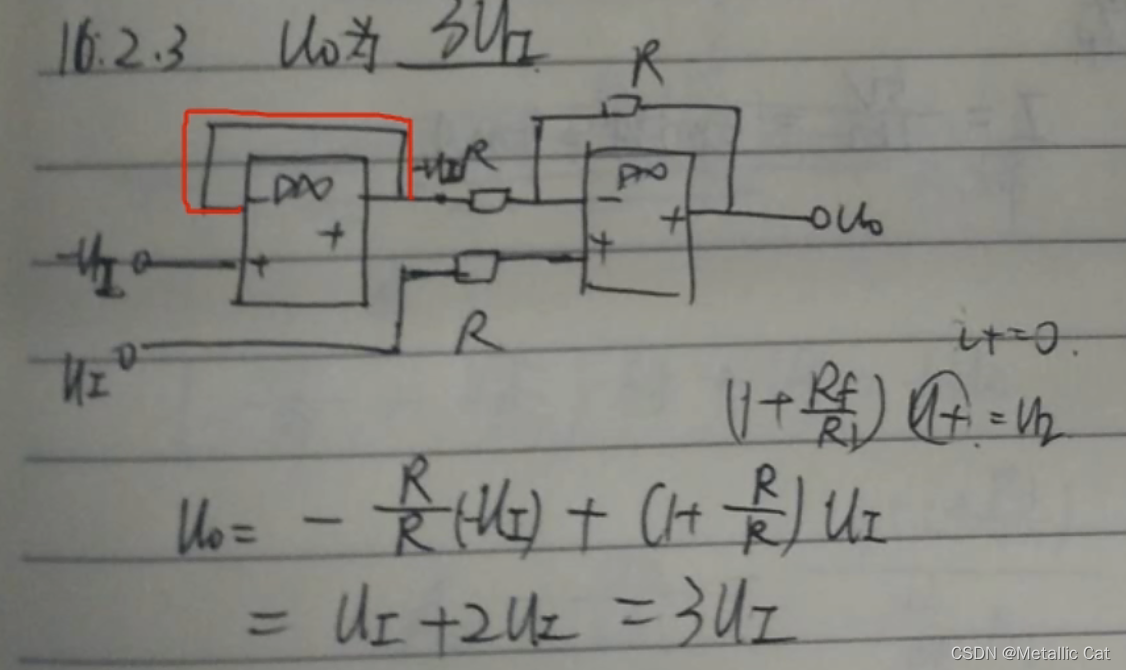 16.2.3 U₀为 3U_I
R
▷∞
-
+
+
-U_I
R
▷∞
-
+
+
U₀
-U_I
R
U_I
i+=0.
(1+Rf/R1) U+ = U2
U₀= - R/R (-U_I) + (1+ R/R) U_I
= U_I+2U_I = 3U_I
CSDN @Metallic Cat